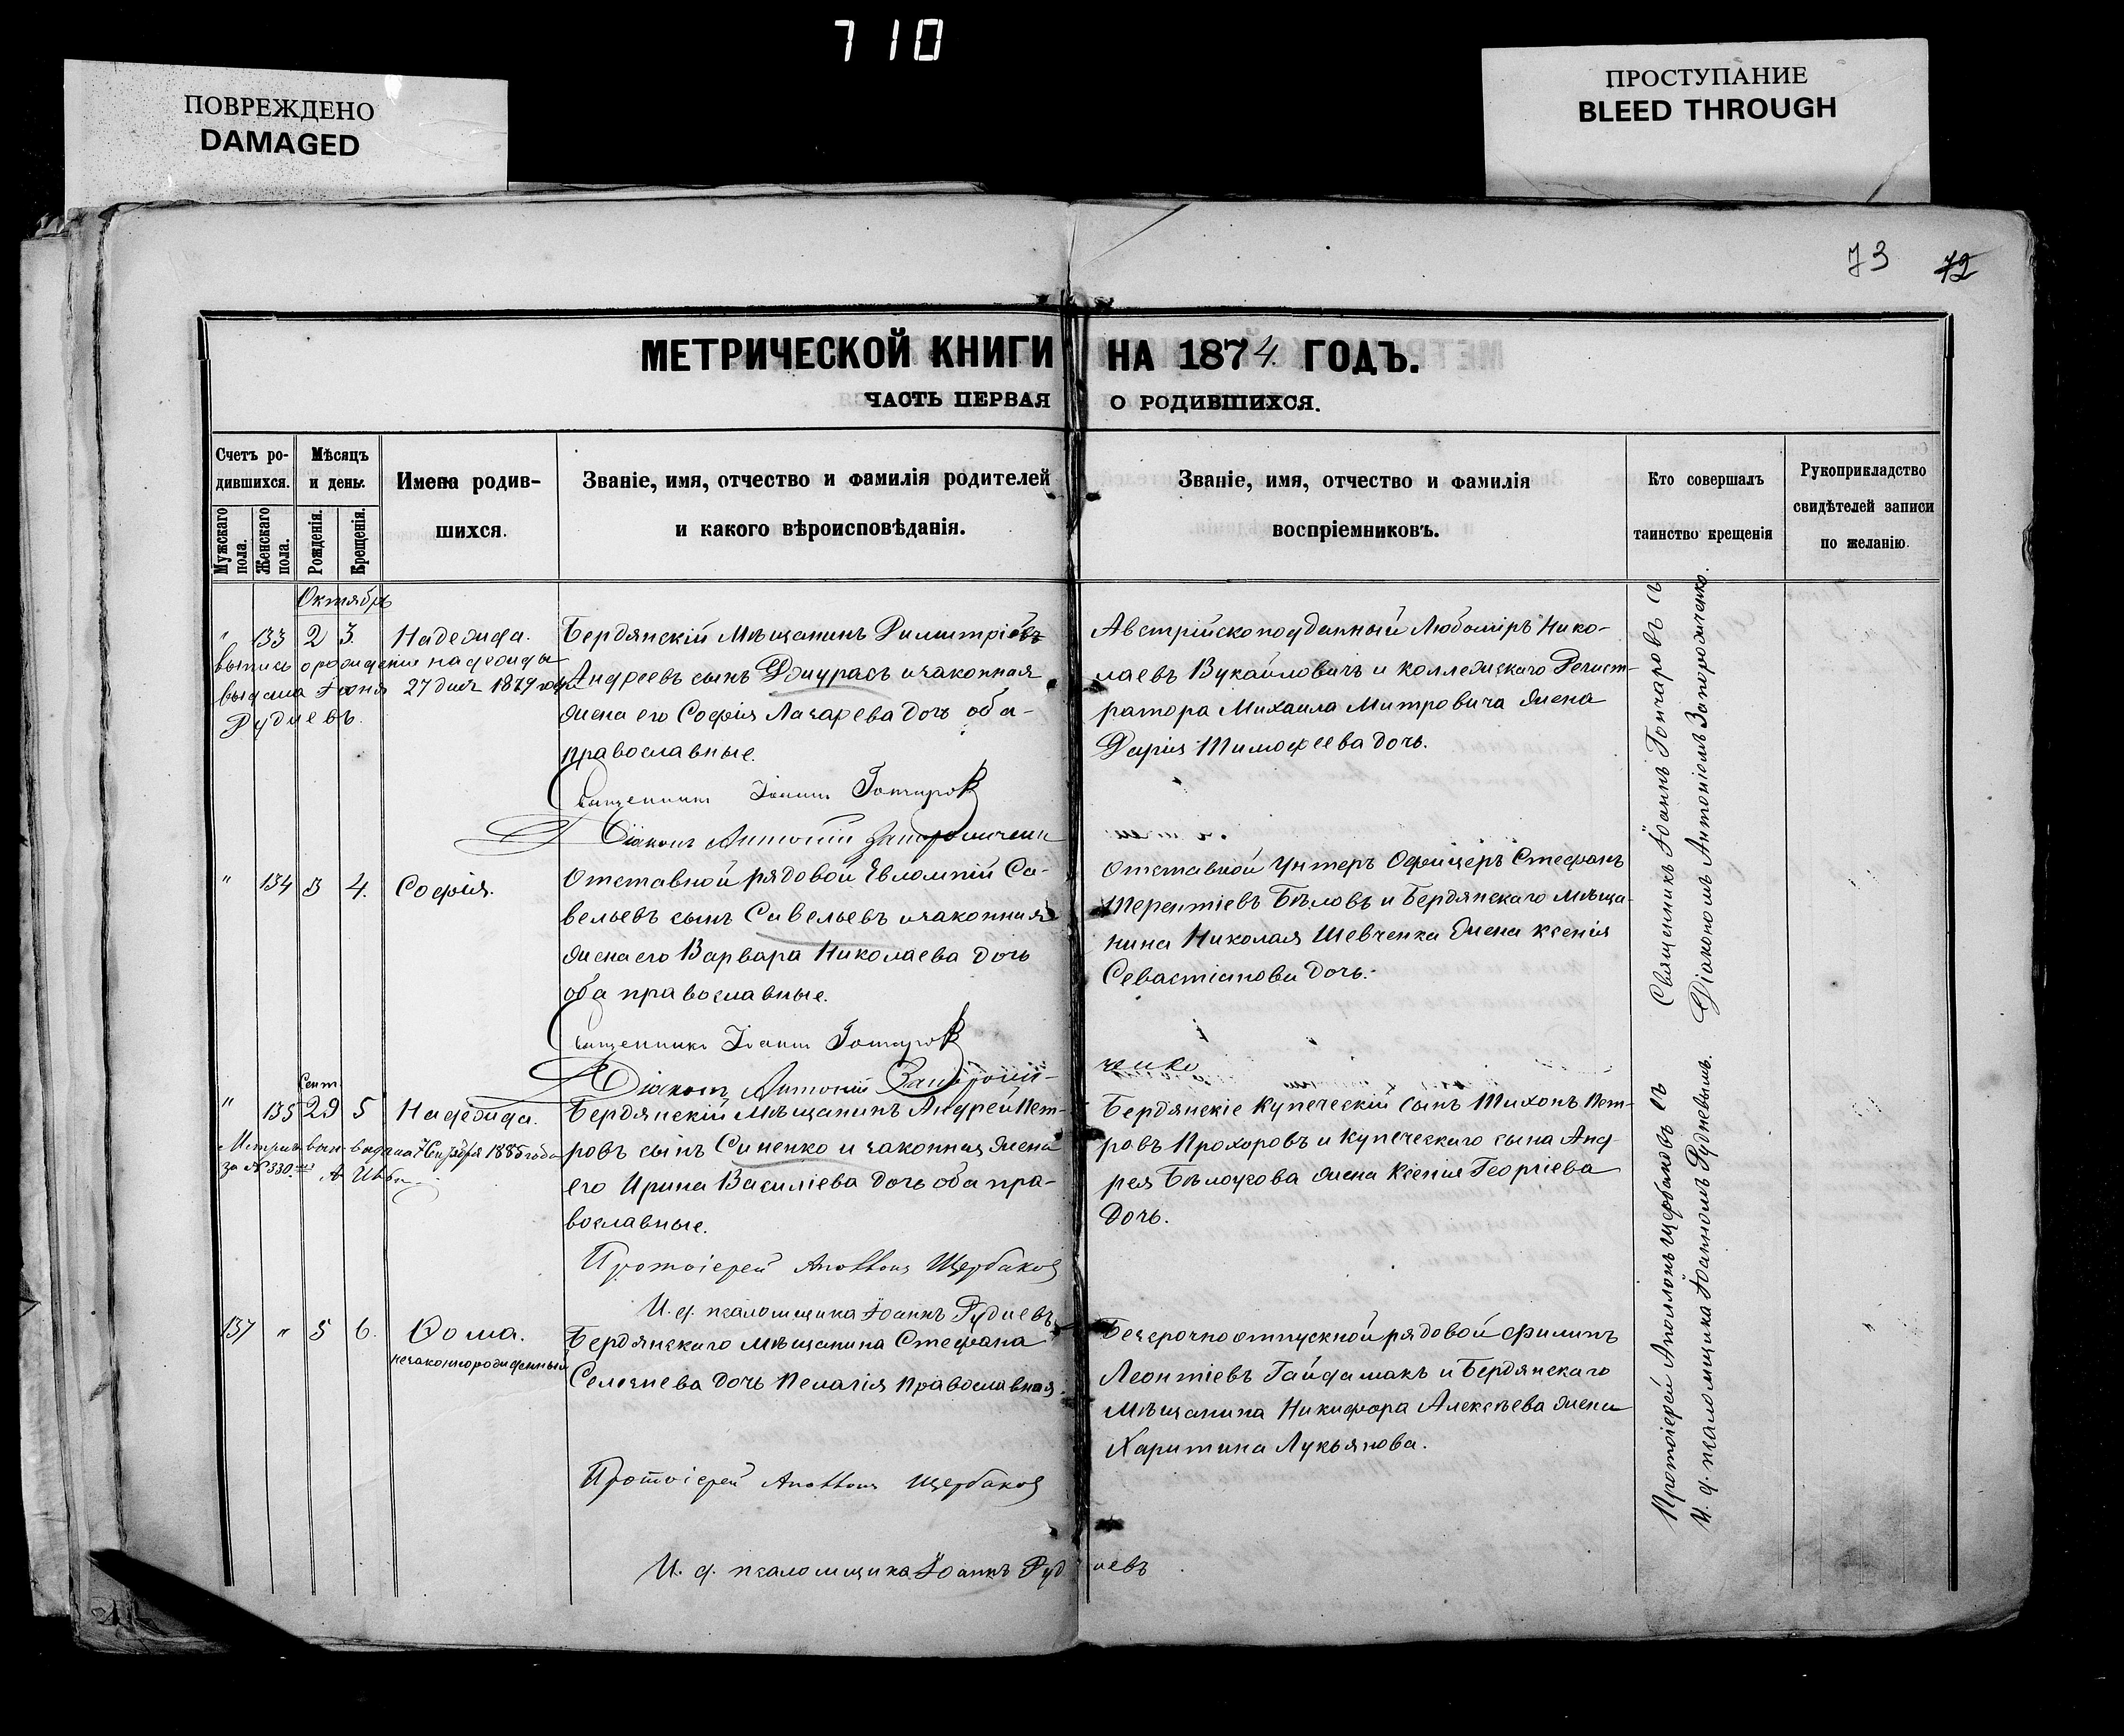 710
ПОВРЕЖДЕНО
DAMAGED
ПРОСТУПАНИЕ
BLEED THROUGH
73 72
МЕТРИЧЕСКОЙ КНИГИ НА 1874. ГОДЪ.
ЧАСТЬ ПЕРВАЯ О РОДИВШИХСЯ.
Счетъ ро-
дившихся.
Мужскаго пола.
Женскаго пола.
Мѣсяцъ
и день.
Рожденія.
Крещенія.
Имена родив-
шихся.
Званіе, имя, отчество и фамилія родителей
и какого вѣроисповѣданія.
Званіе, имя, отчество и фамилія
воспріемниковъ.
Кто совершалъ
таинство крещенія
Рукоприкладство
свидѣтелей записи
по желанію.
Октябрь
" 133 2 3. Надежда.
выпись о рожденіи Надежды
выдана Іюня 27 дня 1879 года
Рудневъ.
Бердянскій Мѣщанинъ Димитрій
Андреевъ сынъ Джурасъ и законная
жена его Софія Лазарева дочь оба
православные.
Священникъ Іоаннъ Гончаровъ
Діаконъ Антоній Запорожченко
Австрійскоподданный Любоміръ Нико-
лаевъ Вукайловичъ и коллежскаго Регист-
ратора Михаила Митровича жена
Дарія Тимофеева дочь.
" 134 3 4. Софія.
Отставной рядовой Евлампій Са-
вельевъ сынъ Савельевъ и законная
жена его Варвара Николаева дочь
оба православные.
Священникъ Іоаннъ Гончаровъ
Діаконъ Антоній Запорож-
ченко
Отставной Унтеръ Офицеръ Стефанъ
Терентіевъ Бѣловъ и Бердянскаго мѣща-
нина Николая Шевченка жена Ксенія
Севастіанова дочь.
Сент.
" 135 29 5 Надежда.
выдана 1885 года
за № 330.
Бердянскій Мѣщанинъ Андрей Пет-
ровъ сынъ Синенко и законная жена
его Ирина Василіева дочь оба пра-
вославные.
Протоіерей Аполлонъ Щербаковъ
И. д. псаломщика Іоаннъ Рудневъ
Бердянскіе Купеческій сынъ Тихонъ Пет-
ровъ Прохоровъ и Купеческаго сына Анд-
рея Бѣлоусова жена Ксенія Георгіева
дочь.
137 " 5 6. Ѳома.
незаконнорожденный
Бердянскаго мѣщанина Стефана
Селезнева дочь Пелагія православная.
Протоіерей Аполлонъ Щербаковъ
И. д. псаломщика Іоаннъ Рудневъ
Безсрочноотпускной рядовой Филипъ
Леонтіевъ Гайдамакъ и Бердянскаго
Мѣщанина Никифора Алексѣева жена
Харитина Лукьянова.
Священникъ Іоаннъ Гончаровъ съ
Діакономъ Антоніемъ Запорожченко.
Протоіерей Аполлонъ Щербаковъ съ
И. д. псаломщика Іоанномъ Рудневымъ.